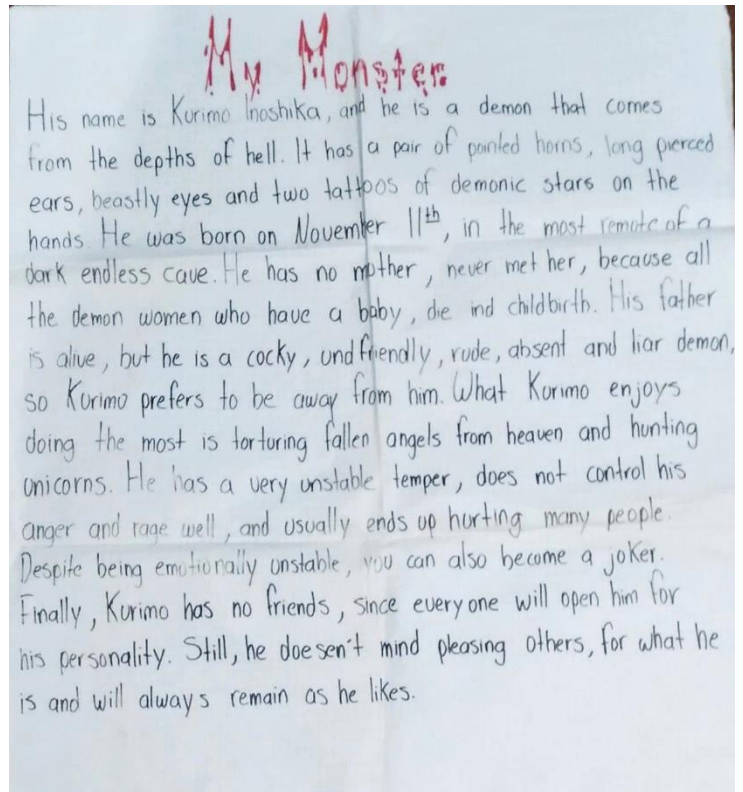 My Monster
His name is Kurimo Inoshika, and he is a demon that comes
from the depths of hell. It has a pair of pointed horns, long pierced
ears, beastly eyes and two tattoos of demonic stars on the
hands. He was born on November 11th, in the most remote of a
dark endless cave. He has no mother, never met her, because all
the demon women who have a baby, die ind childbirth. His father
is alive, but he is a cocky, undfriendly, rude, absent and liar demon,
so Kurimo prefers to be away from him. What Kurimo enjoys
doing the most is torturing fallen angels from heaven and hunting
unicorns. He has a very unstable temper, does not control his
anger and rage well, and usually ends up hurting many people.
Despite being emotionally unstable, you can also become a joker.
Finally, Kurimo has no friends, since everyone will open him for
his personality. Still, he doesen't mind pleasing others, for what he
is and will always remain as he likes.